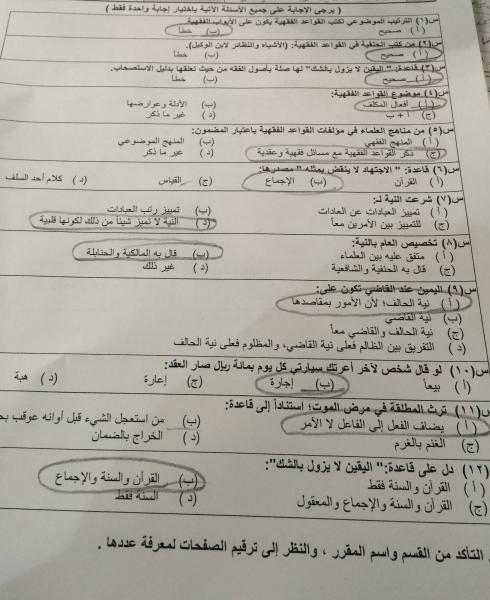 ( يرجى الإجابة على جميع الأسئلة الآتية باختيار إجابة واحدة فقط )
س(١) الترتيب الموضوعي لكتب القواعد الفقهية يكون على الأبواب الفقهية
( أ ) صحيح (ب) خطأ
س(٢) من كتب الحنفية في القواعد الفقهية: (الأشباه والنظائر لابن الوكيل).
( أ ) صحيح (ب) خطأ
س(٣) قاعدة: "اليقين لا يزول بالشك" لها صلة بأصول الفقه من حيث تعلقها بدليل الاستصحاب.
( أ ) صحيح (ب) خطأ
س(٤) موضوع القواعد الفقهية:
( أ ) أفعال المكلف (ب) الأدلة وعوارضها
(ج) أ + ب (د) غير ما ذكر
س(٥) من مناهج العلماء في مؤلفات القواعد الفقهية باعتبار المضمون:
( أ ) المنهج الفقهي (ب) المنهج الموضوعي
(ج) ذكر القواعد الفقهية مع مسائل فقهية وعقدية (د) غير ما ذكر
س(٦) قاعدة: " الاجتهاد لا ينقض بمثله " مصدرها:
( أ ) القرآن (ب) الإجماع (ج) القياس (د ) كلام أحد السلف
س(٧) شرعت النية لـ:
( أ ) تمييز العبادات عن العادات (ب) تمييز رتب العبادات
(ج) للتمييز بين الأمرين معاً (د ) النية لا تميز شيئاً من ذلك لكونها قلبية
س(٨) تخصيص العام بالنية:
( أ ) متفق عليه بين العلماء (ب) قال به المالكية والحنابلة
(ج) قال به الحنفية والشافعية (د ) غير ذلك
س(٩) اليمين عند القاضي تكون على:
( أ ) نية الحالف؛ لأن الأمور بمقاصدها
(ب) نية القاضي
(ج) نية الحالف والقاضي معاً
(د ) التفريق بين الظالم فعلى نية القاضي، والمظلوم فعلى نية الحالف
س(١٠) لو قال شخص لآخر أعرتك سيارتي كل يوم بمائة ريال صار العقد:
( أ ) بيعاً (ب) إجارة (ج) إعارة (د ) هبة
س(١١) ترث المطلقة في مرض الموت؛ استناداً إلى قاعدة:
( أ ) يضاف الفعل إلى الفاعل لا الأمر (ب) من استعجل الشيء قبل أوانه عوقب
(ج) الغنم بالغرم (د ) الخراج بالضمان
س(١٢) دل على قاعدة:" اليقين لا يزول بالشك":
( أ ) القرآن والسنة فقط (ب) القرآن والسنة والإجماع
(ج) القرآن والسنة والإجماع والمعقول (د ) السنة فقط
التأكد من القسم واسم المقرر ، والنظر إلى ترقيم الصفحات لمعرفة عددها .